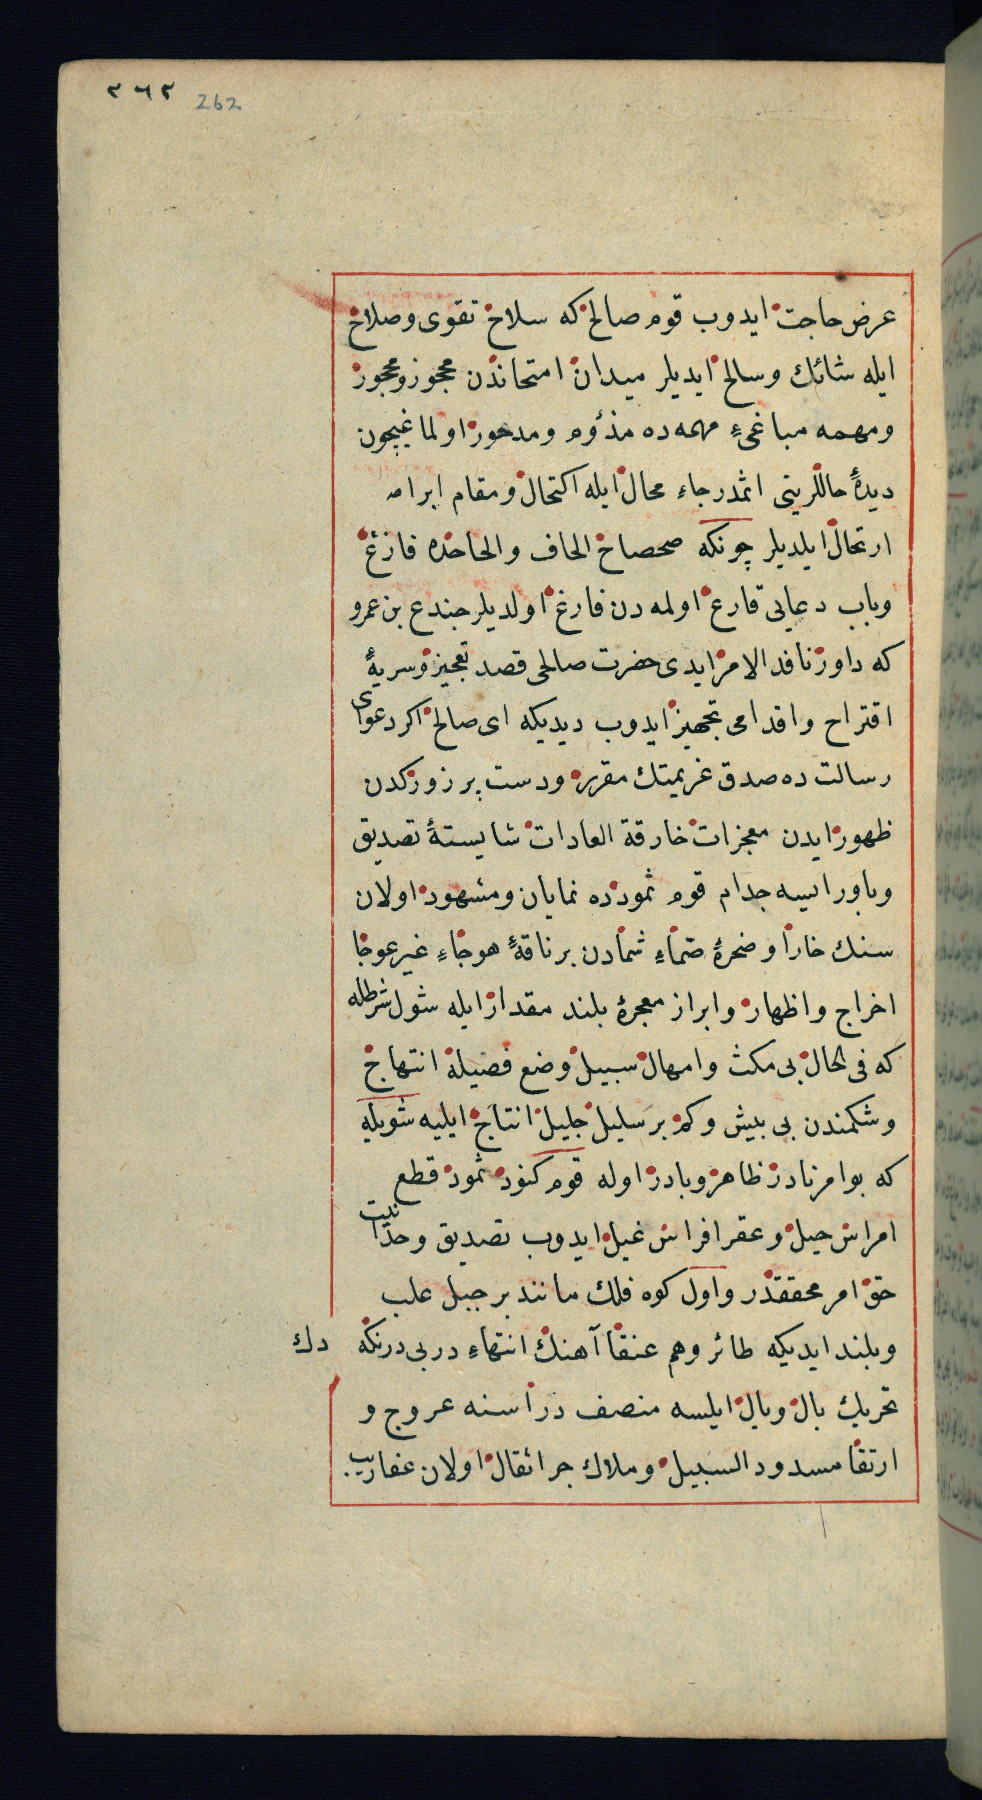 ٢٦٢ 262
عرض حاجت ایدوب قوم صالح که سلاح تقوی وصلاح
ایله شائك وسالح ایدیلر میدان امتحاندن محجوز ومحجور
ومهمه مباغیء مهمه ده مذؤم ومدحور اولماغیچون
دیدهٔ حاللرینی اثمد رجاء محال ایله اکتحال ومقام ابرامه
ارتحال ایلدیلر چونکه صحصاح الحاف والحاحده فازغ
وباب دعایی قارع اولمه دن فارغ اولدیلر جندع بن عمرو
که داور نافد الامر ایدی حضرت صالحی قصد تعجیز وسریهٔ
اقتراح واقدامی تجهیز ایدوب دیدیکه ای صالح اکر دعوای
رسالت ده صدق عزیمتك مقرر ودست پر زوزکدن
ظهور ایدن معجزات خارقة العادات شایستهٔ تصدیق
وباور ایسه جدام قوم ثمودده نمایان ومشهود اولان
سنك خارا وضخرهٔ صماء شمادن بر ناقهٔ هوجاء غیر عوجا
اخراج واظهار وابراز معجزهٔ بلند مقدار ایله شول شرطله
که فی الحال بی مکث وامهال سبیل وضع فصیله انتهاج
وشکمندن بی بیش وکم بر سلیل جلیل انتاج ایلیه شویله
که بو امر نادر ظاهر وبادر اوله قوم کنود ثمود قطع
امراس حیل وعقر افراس غیل ایدوب تصدیق وحدانیت
حق امر محققدر واول کوه فلك مانند بر جبل علب
وبلند ایدیکه طائر وهم عنقا آهنك انتهاء دربی درنکه
دك
تحریك بال وبال ایلسه منصف دراسنه عروج و
ارتقا مسدود السبیل وملاك جراثقال اولان عفاریت